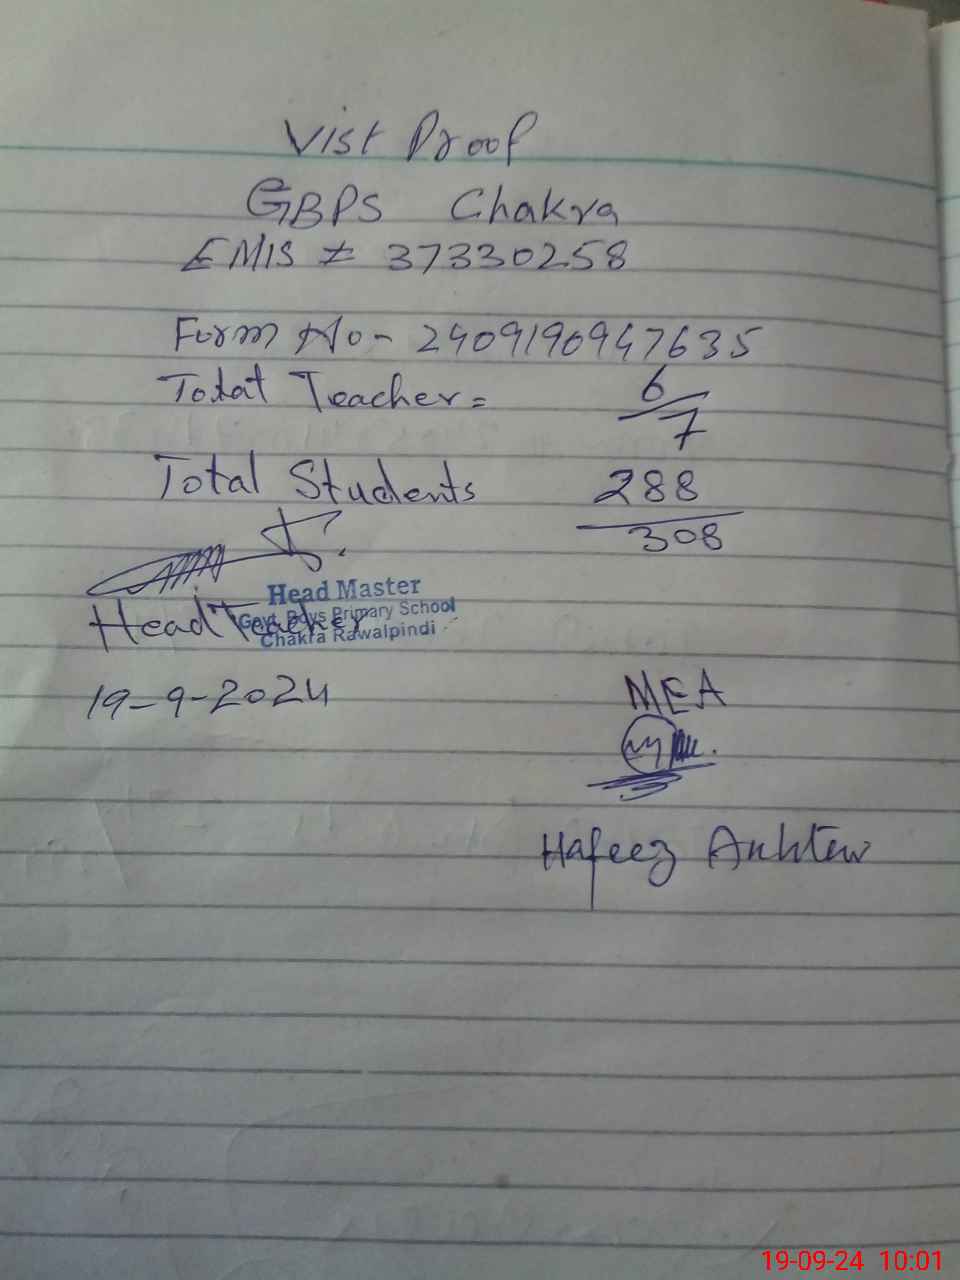 Vist Proof
GBPS Chakra
EMIS # 37330258
Form No - 2409190947635
Total Teacher = 6/7
Total Students 288/308
Head Master
Govt. Boys Primary School
Chakra Rawalpindi
Head Teacher
19-9-2024
MEA
Hafeez Akhter
19-09-24 10:01